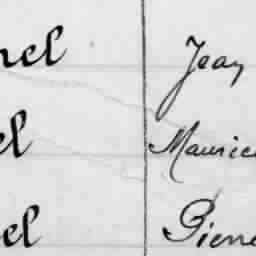 nel Jean
el Maurice
el Pierre